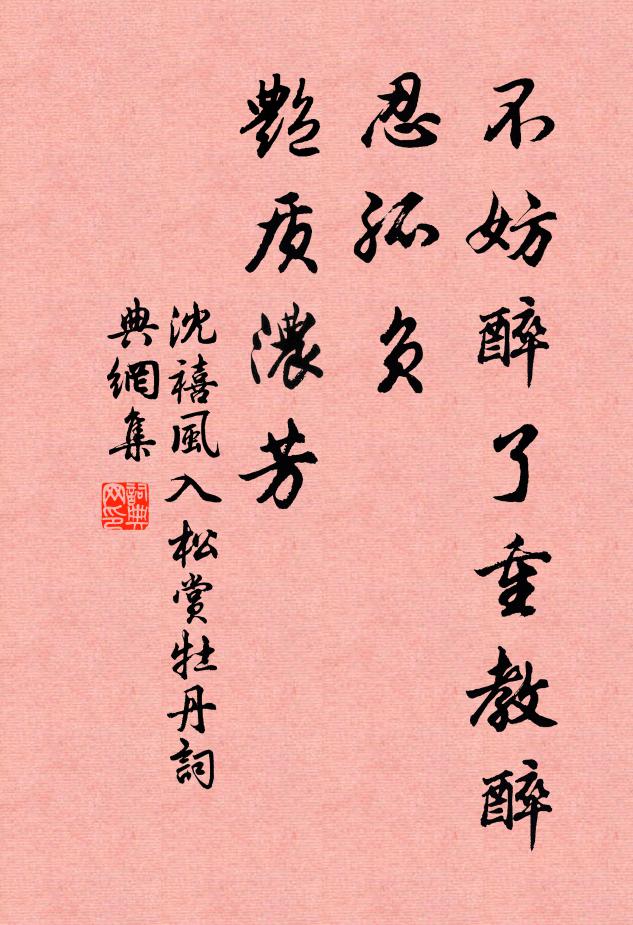 不妨醉了重教醉
忍孤负
艷质濃芳
沈禧風入松賞牡丹詞
典網集
詞典
网印